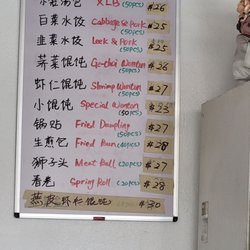 小笼汤包 XLB (50pcs) $26
白菜水饺 Cabbage & Pork (50pcs) $25
韭菜水饺 Leek & Pork (50pcs) $25
荠菜馄饨 Gechai Wonton (50pcs) $26
虾仁馄饨 Shrimp Wonton (50pcs) $27
小馄饨 Special Wonton (50pcs)
锅贴 Fried Dumpling (50pcs) $27
生煎包 Fried Bun (40pcs) $28
狮子头 Meat Ball (20pcs) $27
春卷 Spring Roll (50pcs) $28
燕皮虾仁馄饨 $30